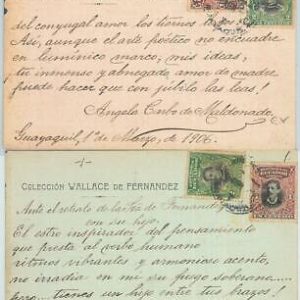 del conyugal amor los tiernos
Así, aunque el arte poético no encuadre
en lumínico marco, mis ideas,
tu inmenso y abnegado amor de madre
puede hacer que con júbilo las leas!
Angela Carbo de Maldonado.
Guayaquil, 1º de Marzo, de 1906.
-1-
COLECCIÓN WALLACE DE FERNANDEZ
Ante el retrato de la Sra de Fernandez
con su hijo.
El estro inspirador del pensamiento
que presta al verbo humano
ritmos vibrantes y armonioso acento,
no irradia en mi su fuego soberano....
pero... tienes un hijo entre tus brazos!